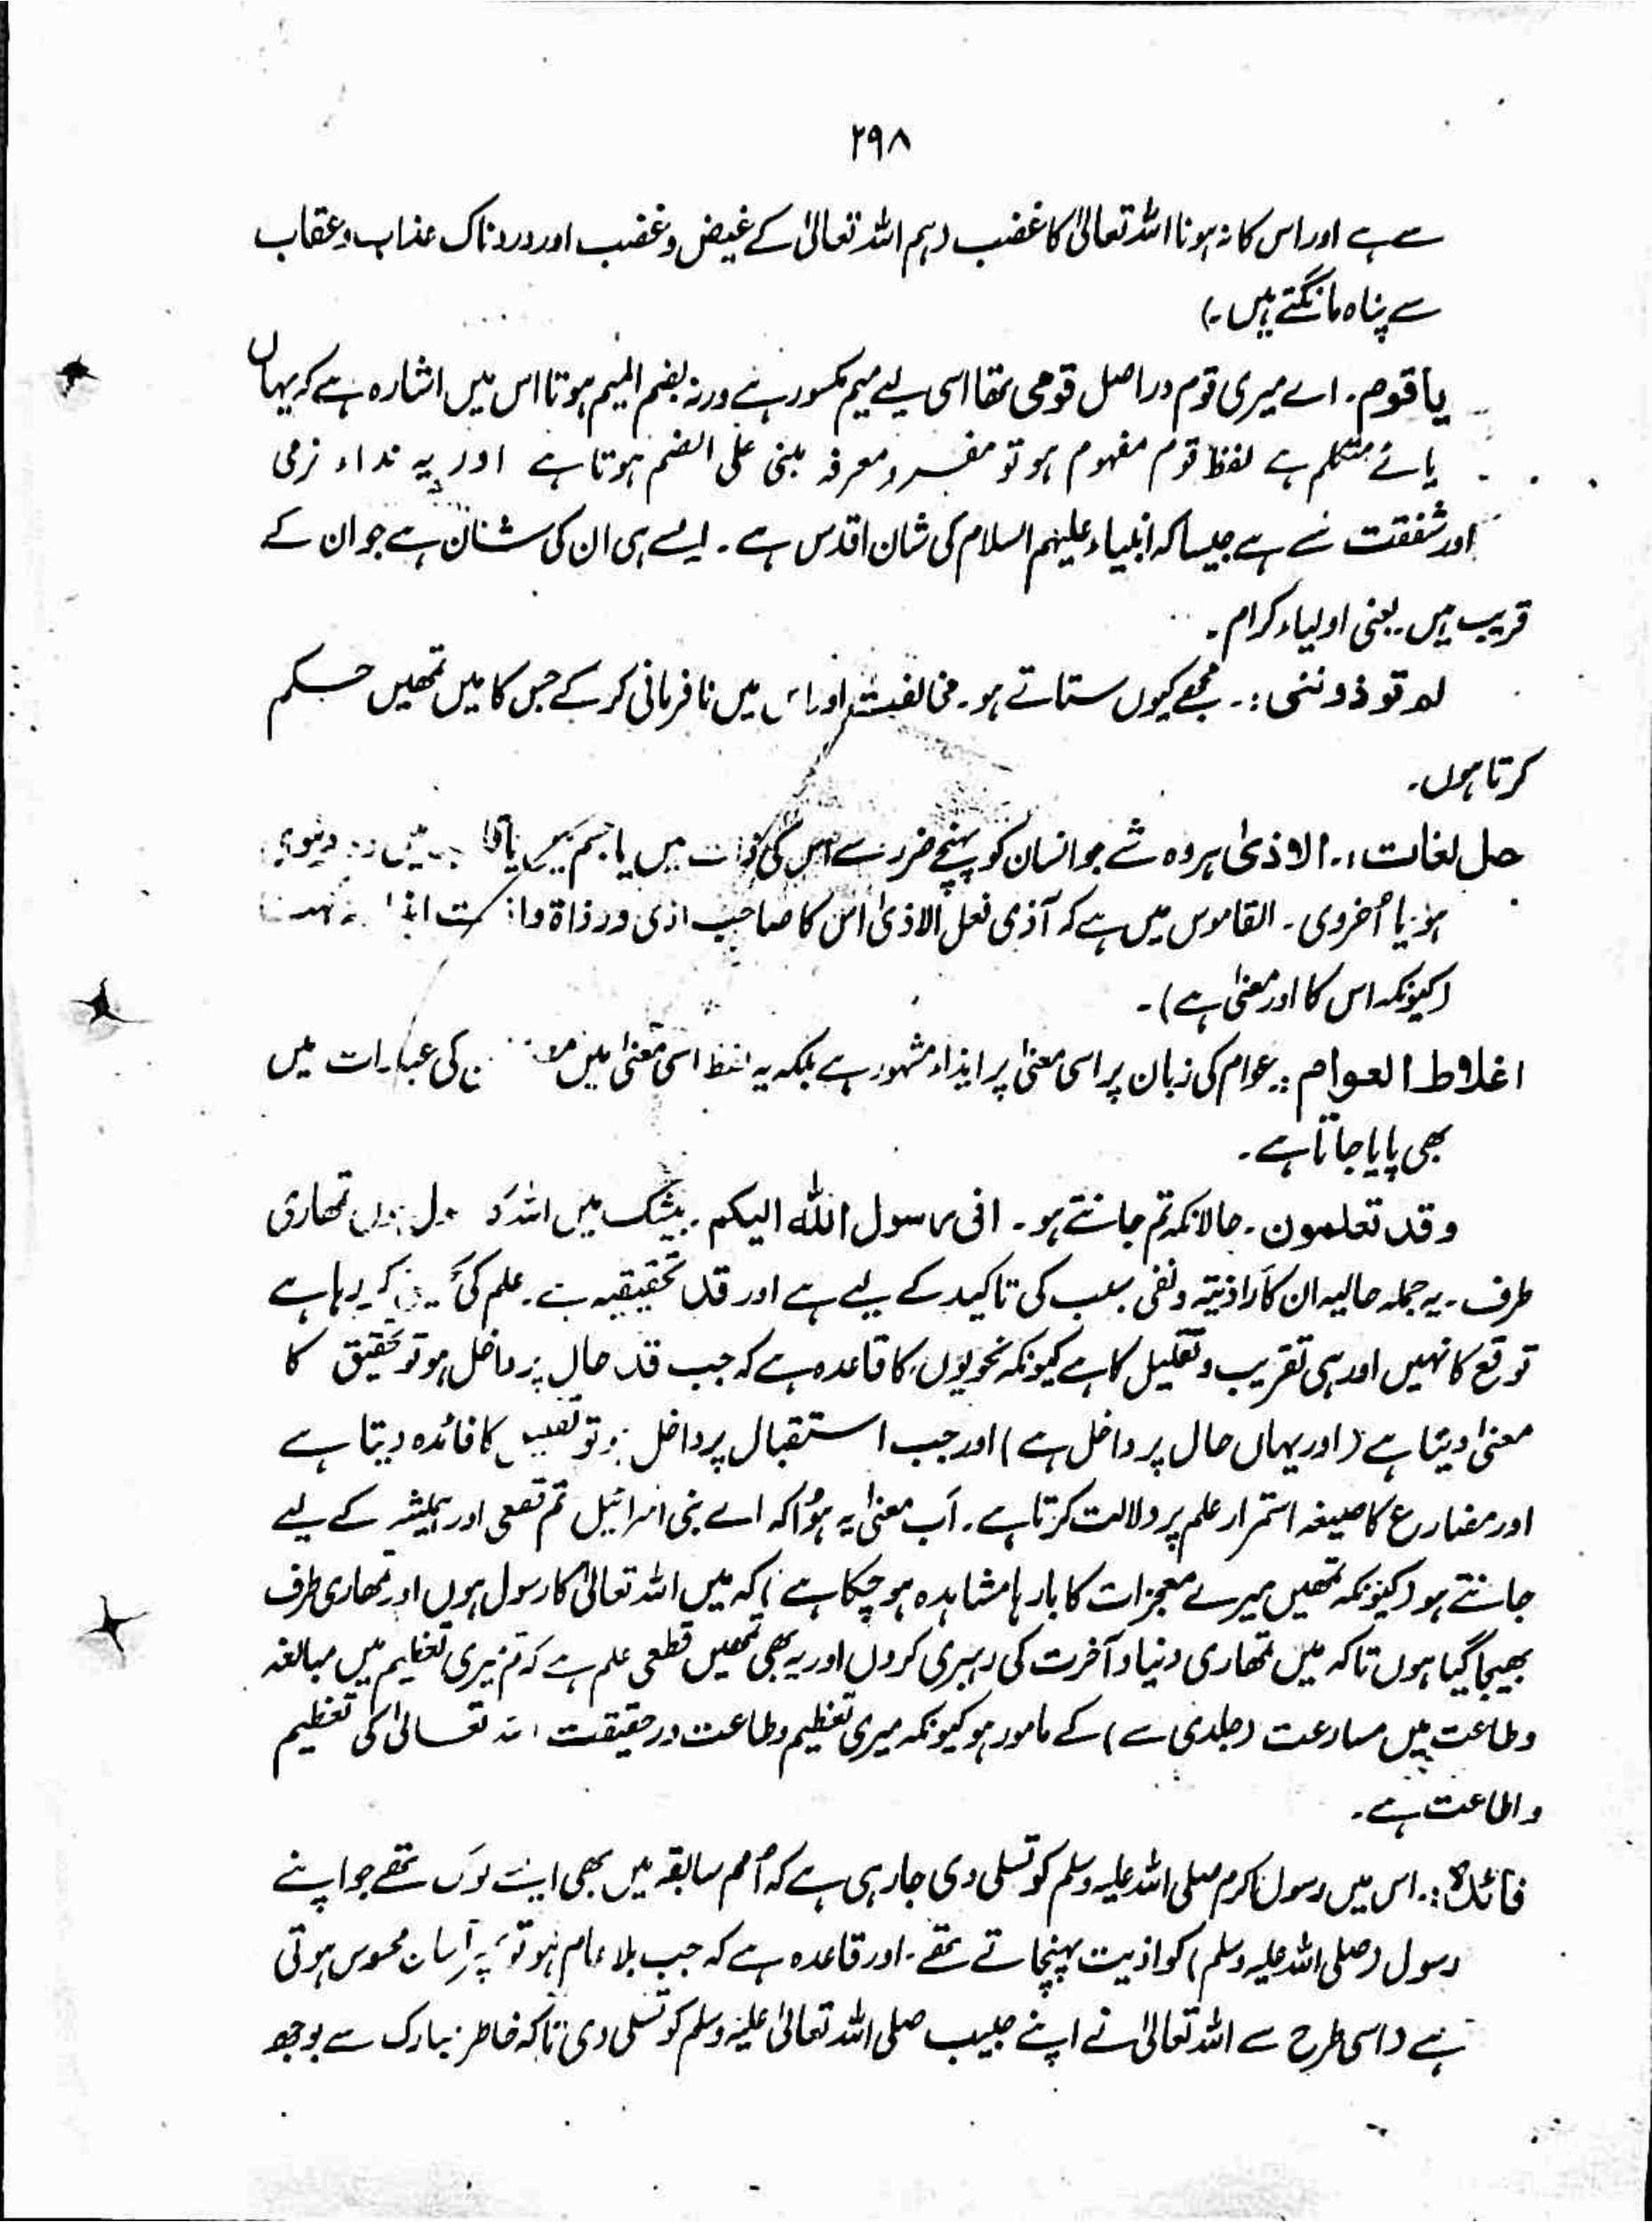 ۲۹۸
سے ہے اور اس کا نہ ہونا اللہ تعالیٰ کا غضب (ہم اللہ تعالیٰ کے غیض و غضب اور دردناک عذاب و عقاب
سے پناہ مانگتے ہیں۔)
یا قوم۔ اے میری قوم دراصل قومی تھا اسی لیے میم مکسور ہے ورنہ بضم المیم ہوتا اس میں اشارہ ہے کہ یہاں
یائے متکلم ہے لفظ قوم مفہوم ہو تو مفرد معرفہ مبنی علی الضم ہوتا ہے اور یہ نداء نرمی
اور شفقت سے ہے جیسا کہ انبیاء علیہم السلام کی شان اقدس ہے۔ ایسے ہی ان کی شان ہے جو ان کے
قریب ہیں۔ یعنی اولیاء کرام۔
لم توذوننی :۔ مجھے کیوں ستاتے ہو۔ مخالفت اور اس میں نافرمانی کر کے جس کا میں تمھیں حکم
کرتا ہوں۔
حل لغات :۔ الاذیٰ ہر وہ شے جو انسان کو پہنچے ضرر سے اس کی ذات میں یا جسم میں یا میں دنیوی
ہو یا اُخروی۔ القاموس میں ہے کہ آذی فعل الاذیٰ اس کا صاحب اذی
(کیونکہ اس کا اور معنیٰ ہے)۔
اغلاط العوام :۔ عوام کی زبان پر اسی معنیٰ پر ایذاء مشہور ہے بلکہ یہ لفظ اسی معنیٰ میں کی عبارات میں
بھی پایا جاتا ہے۔
وقد تعلمون۔ حالانکہ تم جانتے ہو۔ انی رسول اللہ الیکم۔ بیشک میں اللہ کا رسول ہوں تمھاری
طرف۔ یہ جملہ حالیہ انکار اذیتہ و نفی سبب کی تاکید کے لیے ہے اور قد تحقیقیہ ہے۔ علم کی کے رہا ہے
توقع کا نہیں اور ہی تقریب و تقلیل کا ہے کیونکہ نحویوں کا قاعدہ ہے کہ جب قد حال پر داخل ہو تو تحقیق کا
معنیٰ دیتا ہے (اور یہاں حال پر داخل ہے) اور جب استقبال پر داخل ہو تو کا فائدہ دیتا ہے
اور مضارع کا صیغہ استمرار علم پر دلالت کرتا ہے۔ اَب معنیٰ یہ ہُوا کہ اے بنی اسرائیل تم قطعی اور ہمیشہ کے لیے
جانتے ہو (کیونکہ تمھیں میرے معجزات کا بارہا مشاہدہ ہو چکا ہے) کہ میں اللہ تعالیٰ کا رسول ہوں اور تمھاری طرف
بھیجا گیا ہوں تاکہ میں تمھاری دنیا و آخرت کی رہبری کروں اور یہ بھی تمھیں قطعی علم ہے کہ تم میری تعظیم میں مبالغہ
و طاعت میں مسارعت (جلدی سے) کے مامور ہو کیونکہ میری تعظیم و طاعت درحقیقت اللہ تعالیٰ کی تعظیم
و اطاعت ہے۔
فائدہ :۔ اس میں رسول اکرم صلی اللہ علیہ وسلم کو تسلی دی جا رہی ہے کہ اُمم سابقہ میں بھی ایسے لوگ تھے جو اپنے
رسول (صلی اللہ علیہ وسلم) کو اذیت پہنچاتے تھے۔ اور قاعدہ ہے کہ جب بلا عام ہو تو پھر آسان محسوس ہوتی
ہے (اسی طرح سے اللہ تعالیٰ نے اپنے حبیب صلی اللہ تعالیٰ علیہ وسلم کو تسلی دی تاکہ خاطر مبارک سے بوجھ